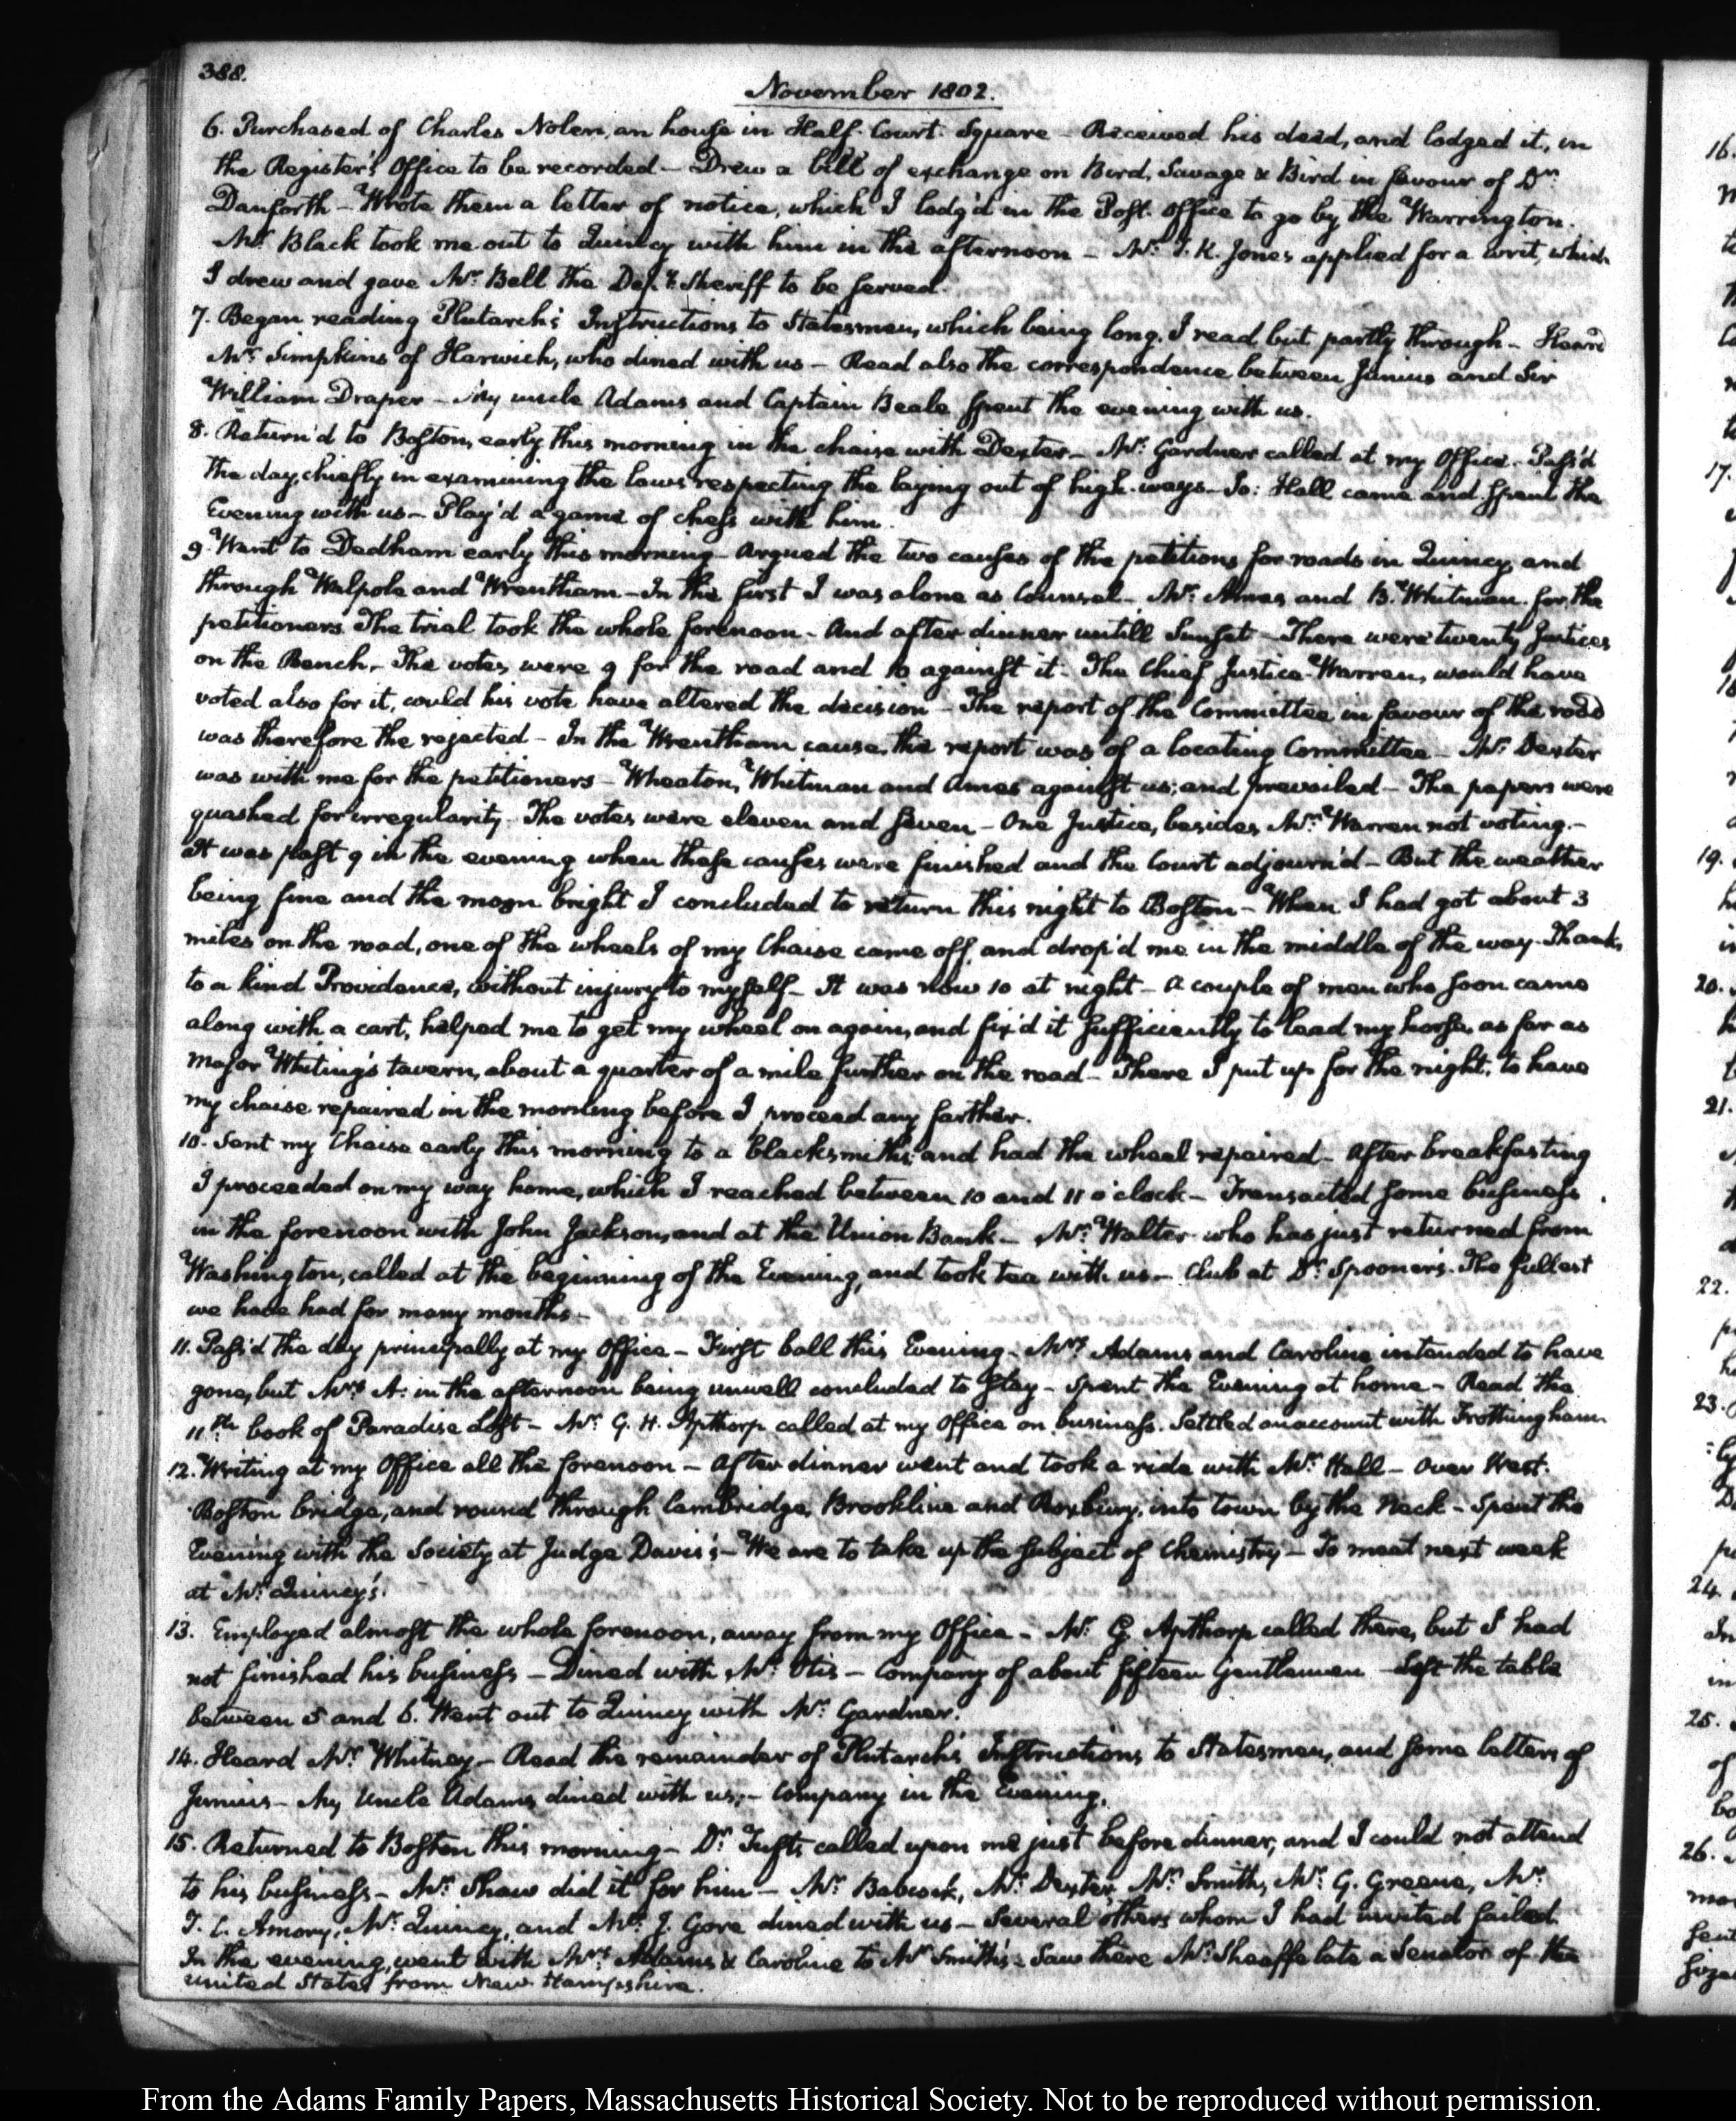 388.
November 1802.
6. Purchased of Charles Nolen, an house in Half-Court-Square – Received his deed, and lodged it, in
the Register's Office to be recorded – Drew a bill of exchange on Bird, Savage & Bird in favour of Dr.
Danforth – Wrote them a letter of notice, which I lodg'd in the Post-Office to go by the Warrington.
Mr. Black took me out to Quincy with him in the afternoon – Mr. T. K. Jones applied for a writ, which
I drew and gave Mr. Bell the Depy. Sheriff to be served.
7. Began reading Plutarch's Instructions to Statesmen, which being long, I read but partly through – Heard
Mr. Simpkins of Harwich, who dined with us – Read also the correspondence between Junius and Sir
William Draper – My uncle Adams and Captain Beale spent the evening with us.
8. Return'd to Boston, early this morning in the chaise with Dexter – Mr. Gardner called at my Office. Pass'd
the day, chiefly in examining the laws respecting the laying out of high-ways – Jo: Hall came and spent the
Evening with us – Play'd a game of chess with him.
9. Went to Dedham early this morning – Argued the two causes of the petitions for roads in Quincy, and
through Walpole and Wrentham – In the first I was alone as Counsel – Mr. Ames and B. Whitman for the
petitioners. The trial took the whole forenoon – And after dinner untill Sunset – There were twenty Justices
on the Bench – The votes were 9 for the road and 10 against it – The Chief Justice Warren, would have
voted also for it, could his vote have altered the decision – The report of the Committee in favour of the road
was therefore the rejected – In the Wrentham cause, the report was of a locating Committee – Mr. Dexter
was with me for the petitioners – Wheaton, Whitman and Ames against us; and prevailed – The papers were
quashed for irregularity – The votes were eleven and seven – One Justice, besides Mr. Warren not voting. –
It was past 9 in the evening when these causes were finished and the Court adjourn'd – But the weather
being fine and the moon bright I concluded to return this night to Boston – When I had got about 3
miles on the road, one of the wheels of my Chaise came off, and drop'd me in the middle of the way – Thanks
to a kind Providence, without injury to myself – It was now 10 at night – A couple of men who soon came
along with a cart, helped me to get my wheel on again, and fix'd it sufficiently to lead my horse, as far as
Major Whiting's tavern, about a quarter of a mile further on the road – There I put up for the night, to have
my chaise repaired in the morning before I proceed any farther.
10. Sent my Chaise early this morning to a blacksmith's; and had the wheel repaired – After breakfasting
I proceeded on my way home, which I reached between 10 and 11 o'clock – Transacted some business
in the forenoon with John Jackson, and at the Union Bank – Mr. Walter who has just returned from
Washington, called at the beginning of the Evening, and took tea with us – Club at Dr. Spooner's. The fullest
we have had for many months –
11. Pass'd the day principally at my Office – First ball this Evening – Mrs. Adams and Caroline intended to have
gone, but Mrs. A: in the afternoon being unwell concluded to stay – Spent the Evening at home – Read the
11th. book of Paradise Lost – Mr. G. H. Apthorp called at my Office on business. Settled an account with Frothingham.
12. Writing at my Office all the forenoon – After dinner went and took a ride with Mr. Hall – Over West-
Boston bridge, and round through Cambridge, Brookline and Roxbury, into town by the Neck – Spent the
Evening with the Society at Judge Davis's – We are to take up the subject of Chemistry – To meet next week
at Mr. Quincy's.
13. Employed almost the whole forenoon, away from my Office – Mr. G. Apthorp called there, but I had
not finished his business – Dined with Mr. Otis – Company of about fifteen Gentlemen – Left the table
between 5 and 6. Went out to Quincy with Mr. Gardner.
14. Heard Mr. Whitney – Read the remainder of Plutarch's Instructions to Statesmen, and some letters of
Junius – My Uncle Adams dined with us; – Company in the Evening.
15. Returned to Boston this morning – Dr. Tufts called upon me just before dinner, and I could not attend
to his business – Mr. Shaw did it for him – Mr. Babcock, Mr. Dexter, Mr. Smith, Mr. G. Greene, Mr.
T. C. Amory, Mr. Quincy, and Mr. J. Gore dined with us – Several others whom I had invited failed.
In the evening, went with Mrs. Adams & Caroline to Mr. Smith's – Saw there Mr. Sheaffe late a Senator of the
United States from New Hampshire.
From the Adams Family Papers, Massachusetts Historical Society. Not to be reproduced without permission.